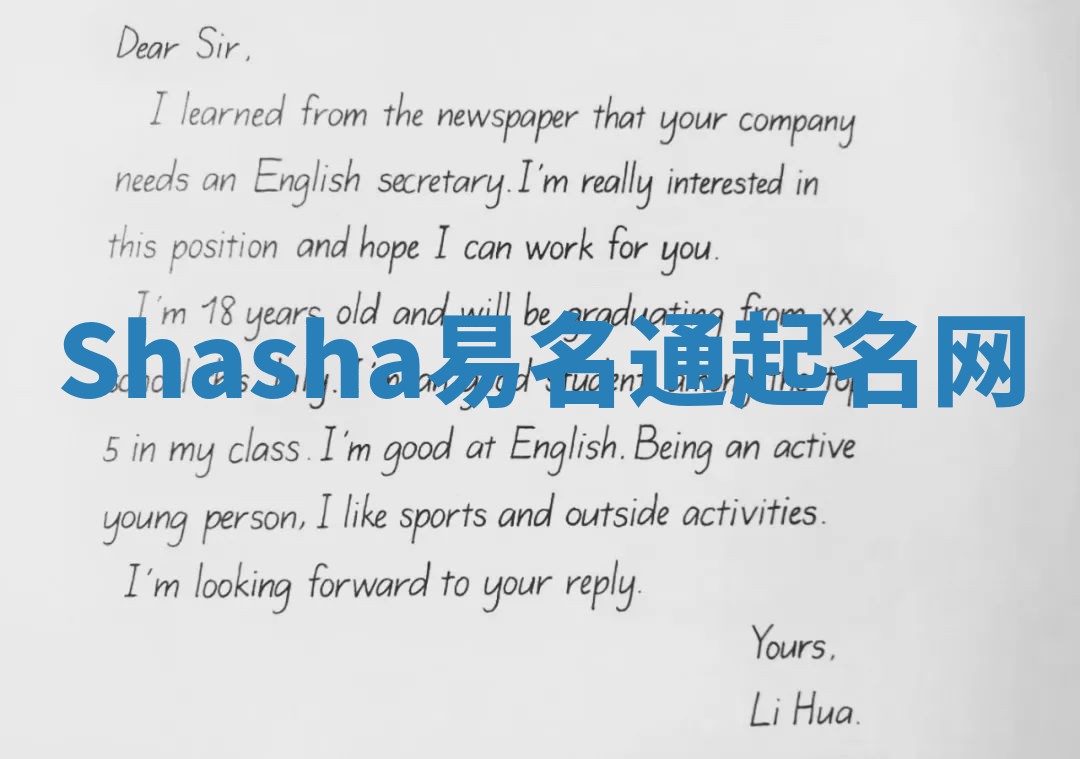 Dear Sir,
I learned from the newspaper that your company
needs an English secretary. I'm really interested in
this position and hope I can work for you.
I'm 18 years old and will be graduating from xx
Shasha易名通起名网
school this July. I'm a good student among the top
5 in my class. I'm good at English. Being an active
young person, I like sports and outside activities.
I'm looking forward to your reply.
Yours,
Li Hua.